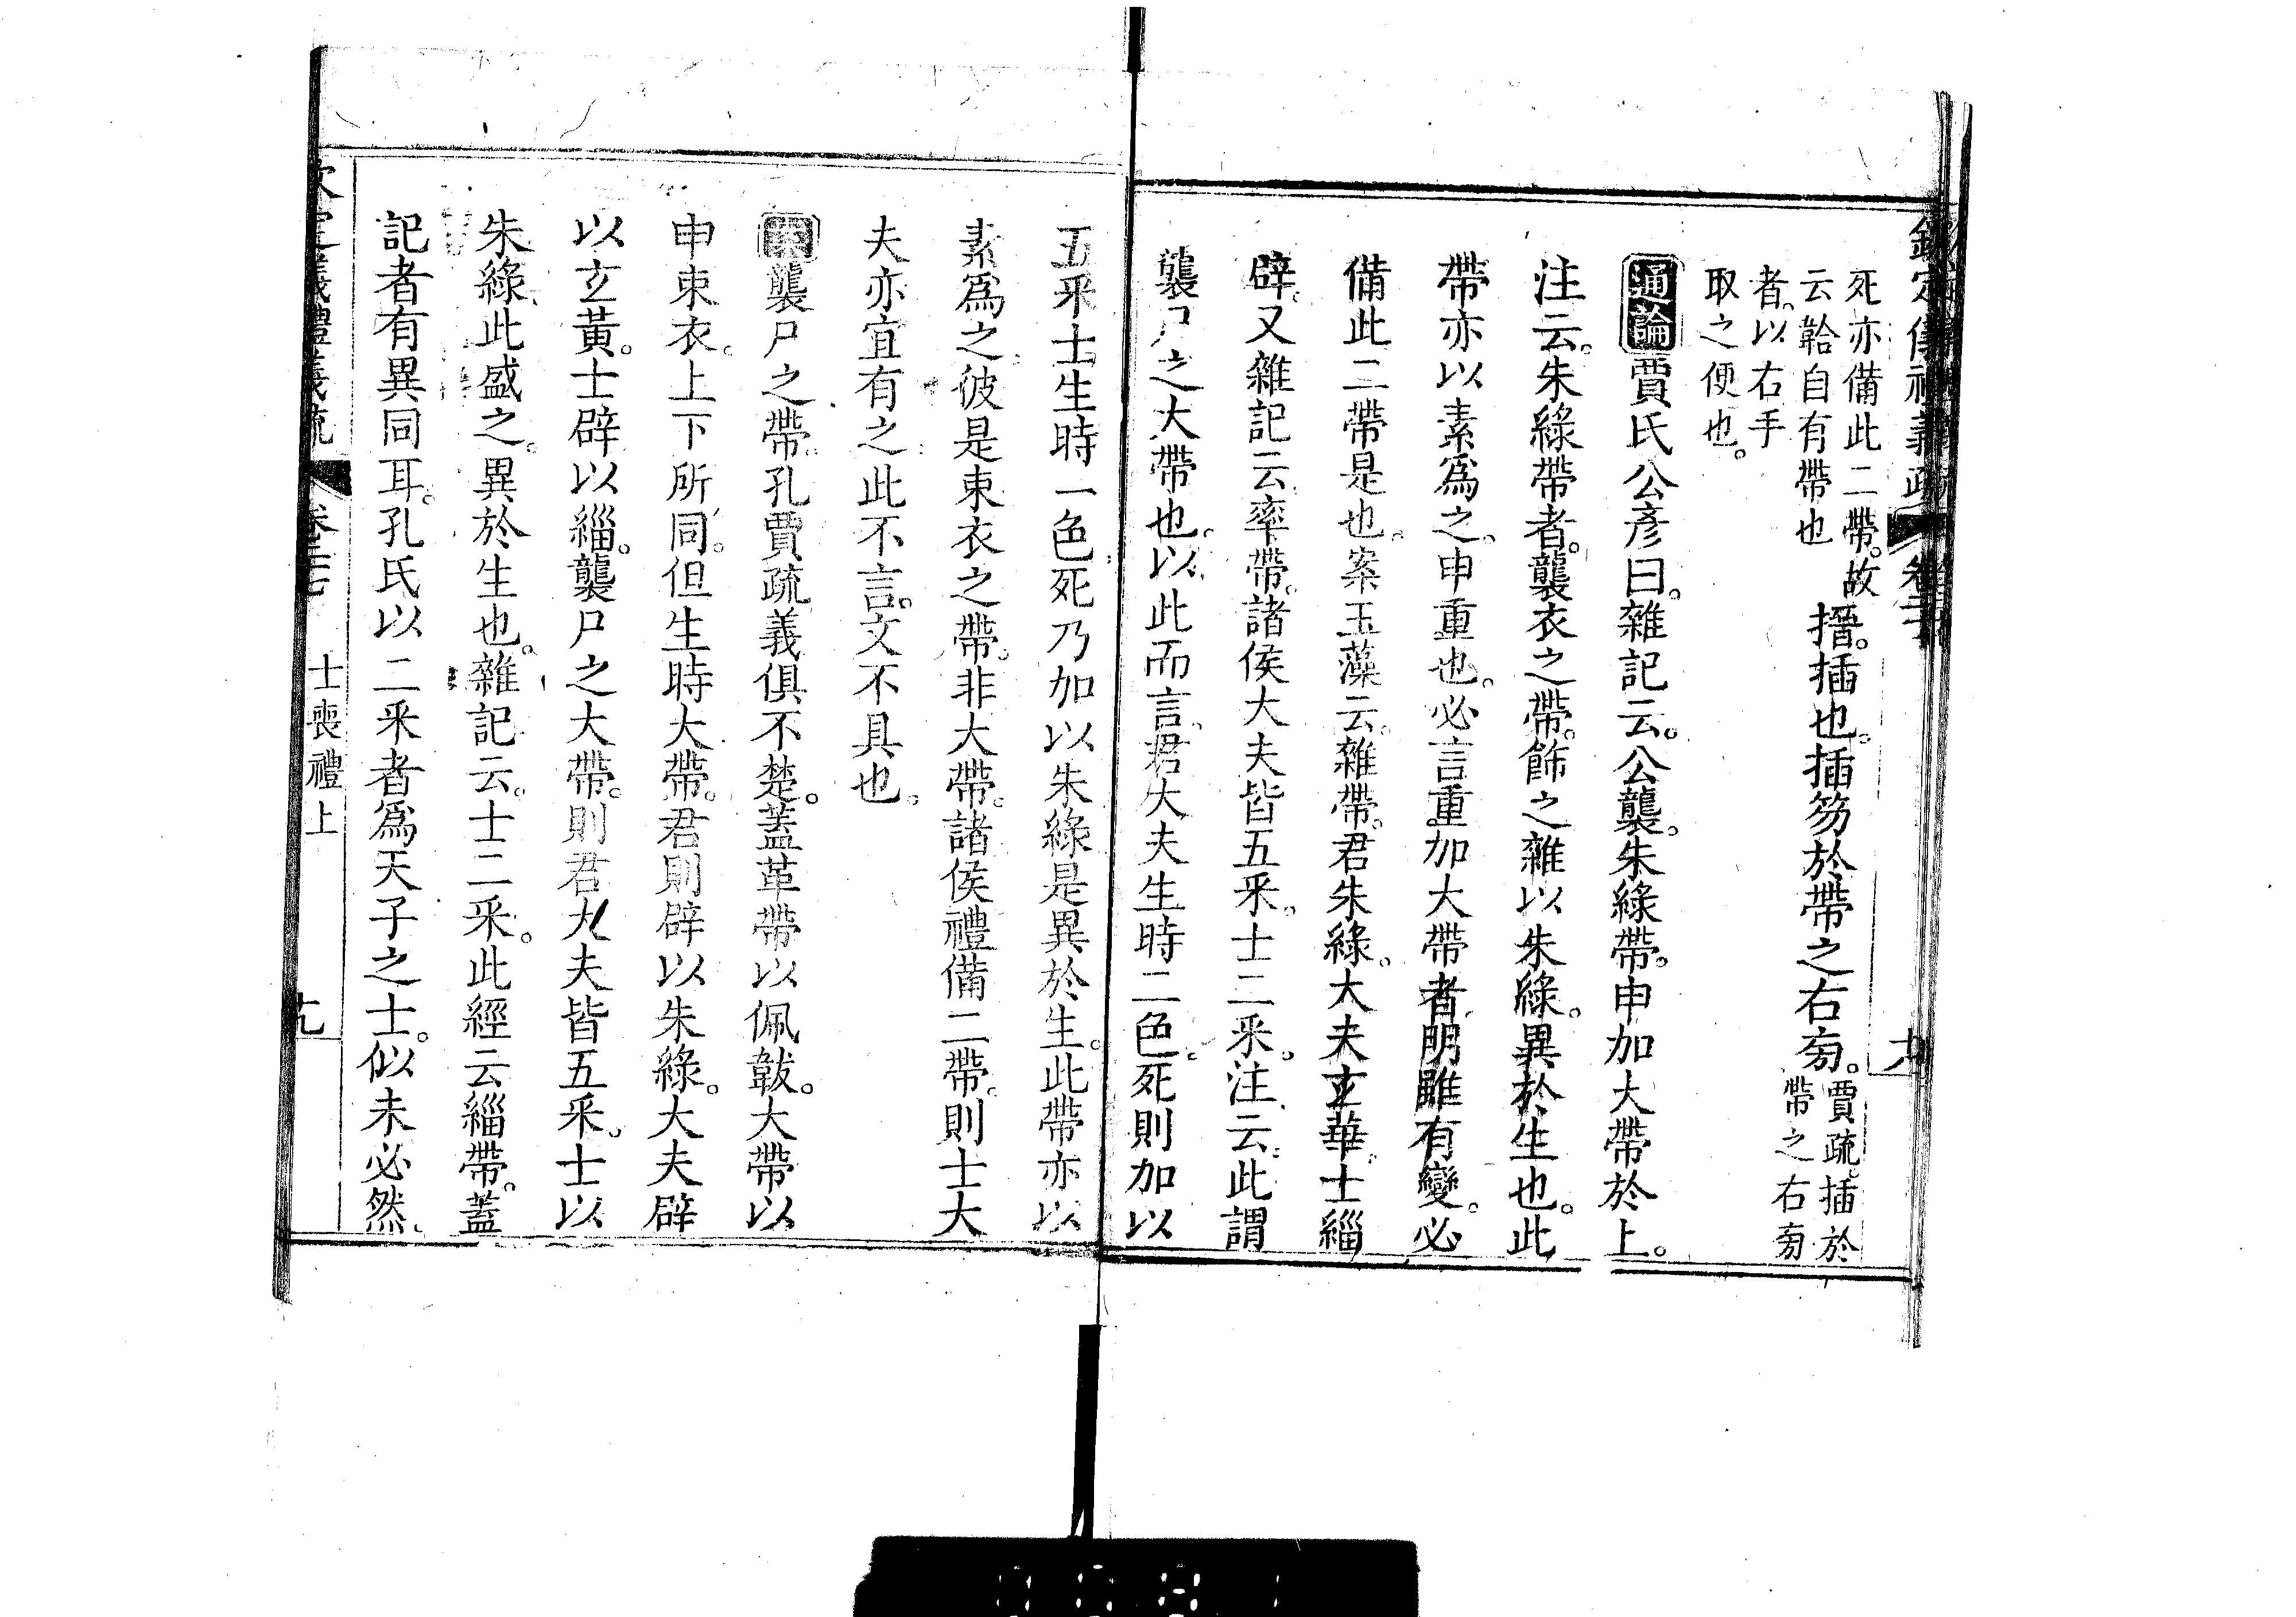 欽定儀禮義疏 卷二十
死亦備此二帶。故
云韐自有帶也
搢。插也。插笏於帶之右旁。
賈疏。插於
帶之右旁
者。以右手
取之便也。
通論賈氏公彥曰。雜記云。公襲。朱綠帶。申加大帶於上。
注云。朱綠帶者。襲衣之帶。飾之雜以朱綠。異於生也。此
帶亦以素爲之。申重也。必言重。加大帶者。明雖有變。必
備此二帶是也。案玉藻云。雜帶。君朱綠。大夫玄華。士緇
辟。又雜記云。率帶。諸侯大夫皆五采。士二采。注云。此謂
襲尸之大帶也。以此而言。君大夫生時二色。死則加以
五采。士生時一色。死乃加以朱綠。是異於生。此帶亦以
素爲之。彼是束衣之帶。非大帶。諸侯禮備二帶。則士大
夫亦宜有之。此不言。文不具也。
案襲尸之帶。孔賈疏義俱不楚。蓋革帶以佩韍。大帶以
申束衣。上下所同。但生時大帶。君則辟以朱綠。大夫辟
以玄黃。士辟以緇。襲尸之大帶。則君大夫皆五采。士以
朱綠。此盛之。異於生也。雜記云。士二采。此經云緇帶。蓋
記者有異同耳。孔氏以二采者爲天子之士。似未必然。
欽定儀禮義疏 卷二十七 士喪禮上